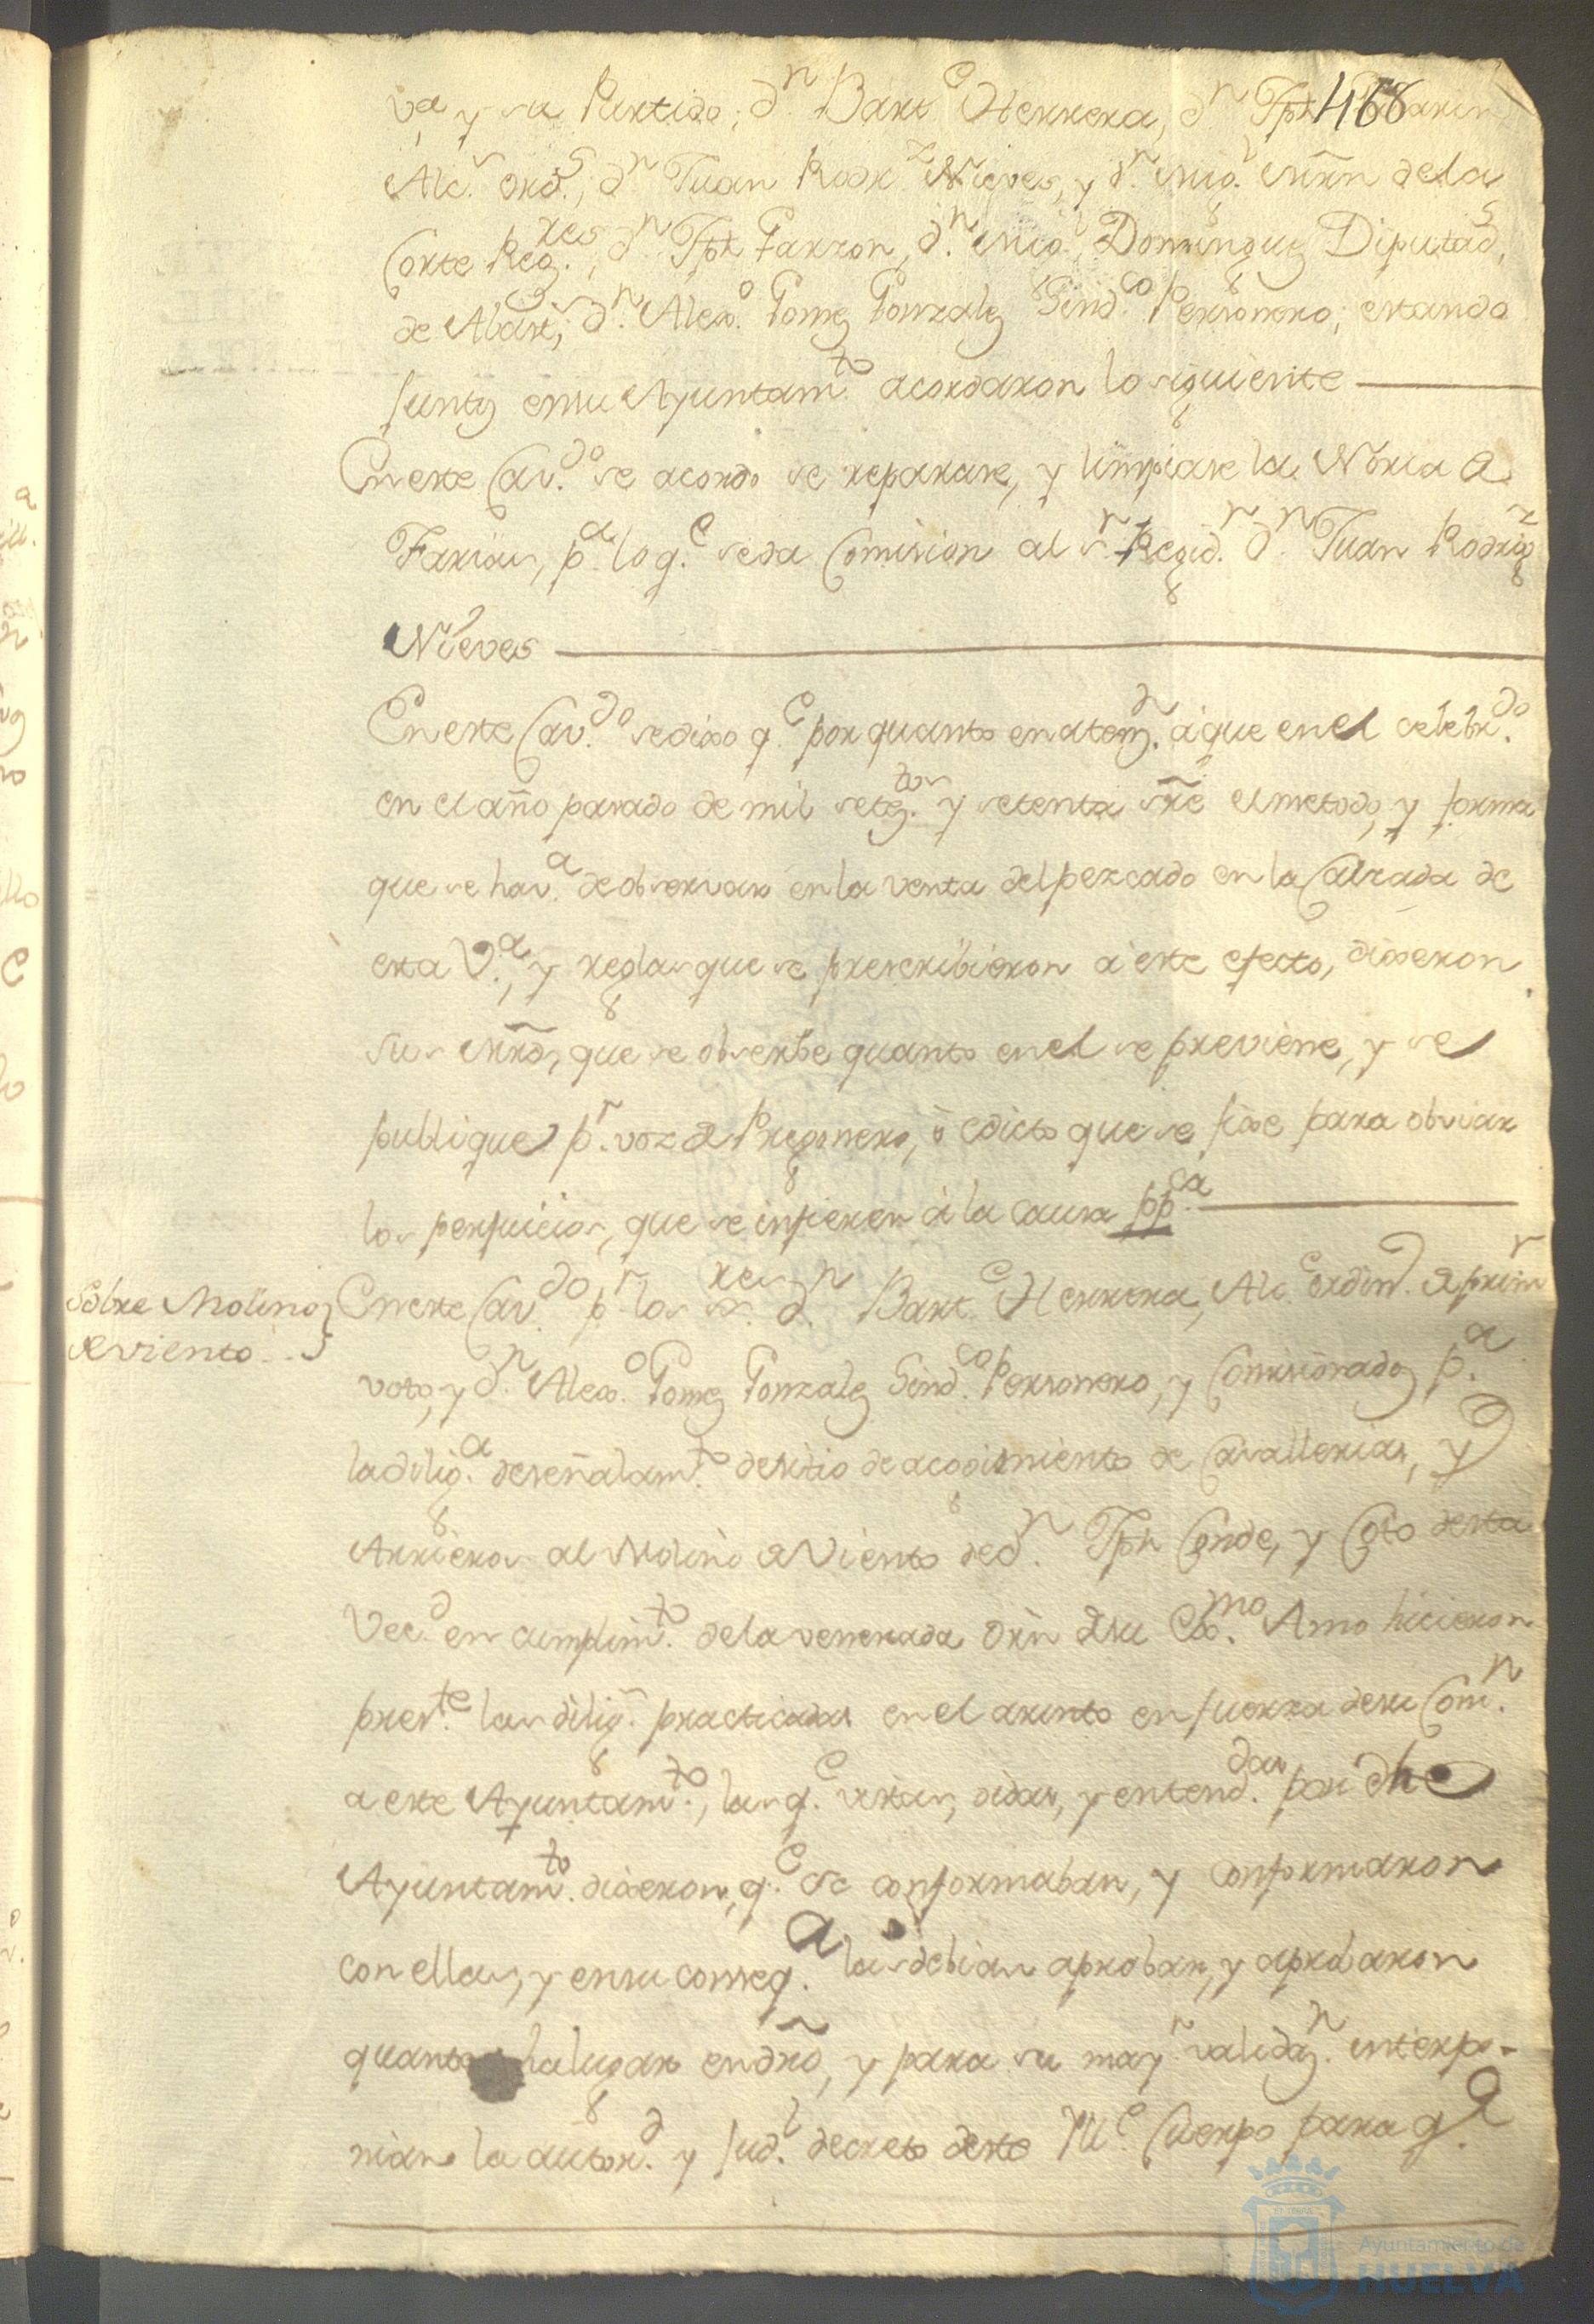 468
Va y su Partido; Dn Barte Herrera, Dn Jph
Alcs ords; Dn Juan Rodrz Nieves, y Dn Migl Mrn dela
Corte Regres, Dn Jph Garzon, Dn Migl Dominguez Diputads
de Abast; Dn Alexo Gomez Gonzalez Sindco Personero; estando
juntos ensu Ayuntamto acordaron lo siguiente
En este Cavdo se acordo se reparase, y limpiase la Noria a
Farias, pa lo qe seda Comision al sr Regidr Dn Juan Rodrigz
Nieves
En este Cavdo sedixo qe por quanto en atenzn aque en el celebrdo
en el año pasado de mil seteztos y setenta sre el metodo, y forma
que se hava de observar en la venta del pezcado en la Calzada de
esta Va, y reglas que se prescribieron a este efecto, dixeron
sus Mrds, que se observe quanto en el se previene, y se
publique pr voz de Pregonero, ò edicto que se fixe para obviar
los perjuicios, que se infieren à la causa ppca
Sobre Molinos
de viento
En este Cavdo pr los sres Dn Barte Herrera, Alce ordino de primr
voto, y Dn Alexo Gomez Gonzalez Sindco Personero, y Comisionados pa
la diliga deseñalamto desitio de acogimiento de Cavallerias, y
Arrieros al Molino de Viento de Dn Jph Conde, y Coto desta
Vecd en cumplimto dela venerada Orn de su Exmo Amo hicieron
preste las dilig. practicadas en el asunto en fuerza desu Comn
a este Ayuntamto, las qe vistas, oidas, y entenddas por dhe
Ayuntamto dixeron, qe se conformaban, y conformaron
con ellas, y ensu conseqa las debian aprobar, y aprobaron
quanto ha lugar en dro, y para su mayr validazn interpo-
nian la autord y judl decreto deste Ille Cuerpo para qe
Ayuntamiento de
HUELVA